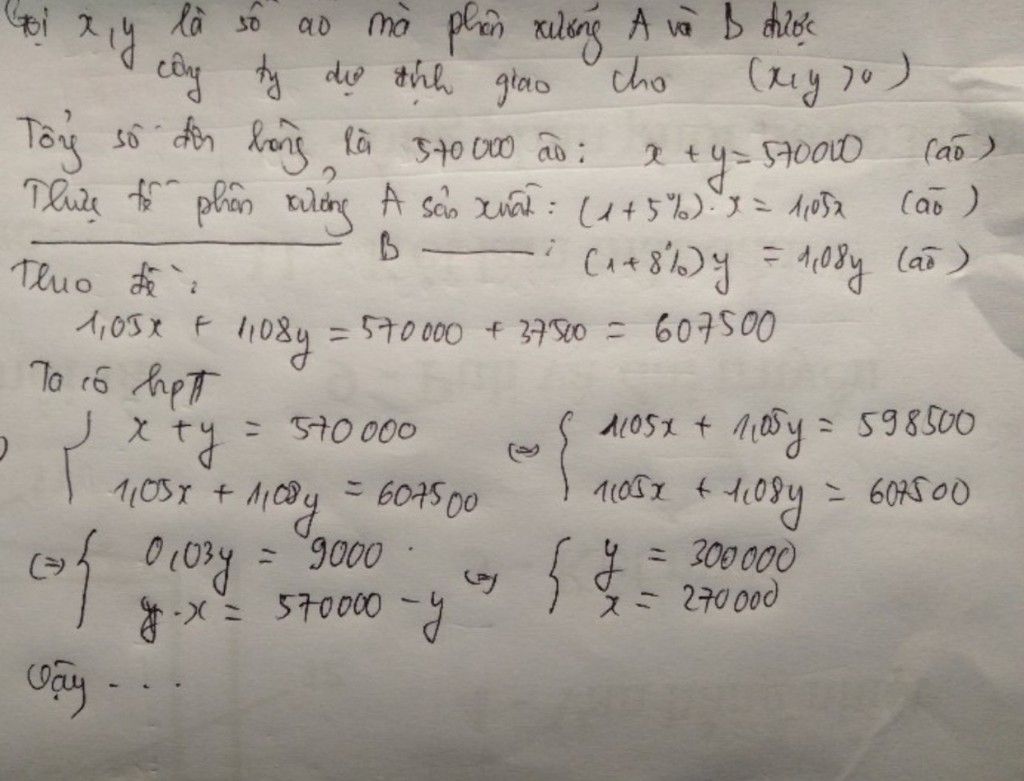 Gọi x, y là số áo mà phân xưởng A và B được
công ty dự định giao cho (x, y > 0)
Tổng số đơn hàng là 570000 áo: x + y = 570000 (áo)
Thực tế phân xưởng A sản xuất: (1 + 5%) . x = 1,05x (áo)
———— B ——— : (1 + 8%) y = 1,08y (áo)
Theo đề :
1,05x + 1,08y = 570000 + 37500 = 607500
Ta có hpt
{ x + y = 570000 (=) { 1,05x + 1,05y = 598500
1,05x + 1,08y = 607500 1,05x + 1,08y = 607500
(=) { 0,03y = 9000 (=) { y = 300000
x = 570000 - y x = 270000
Vậy ...